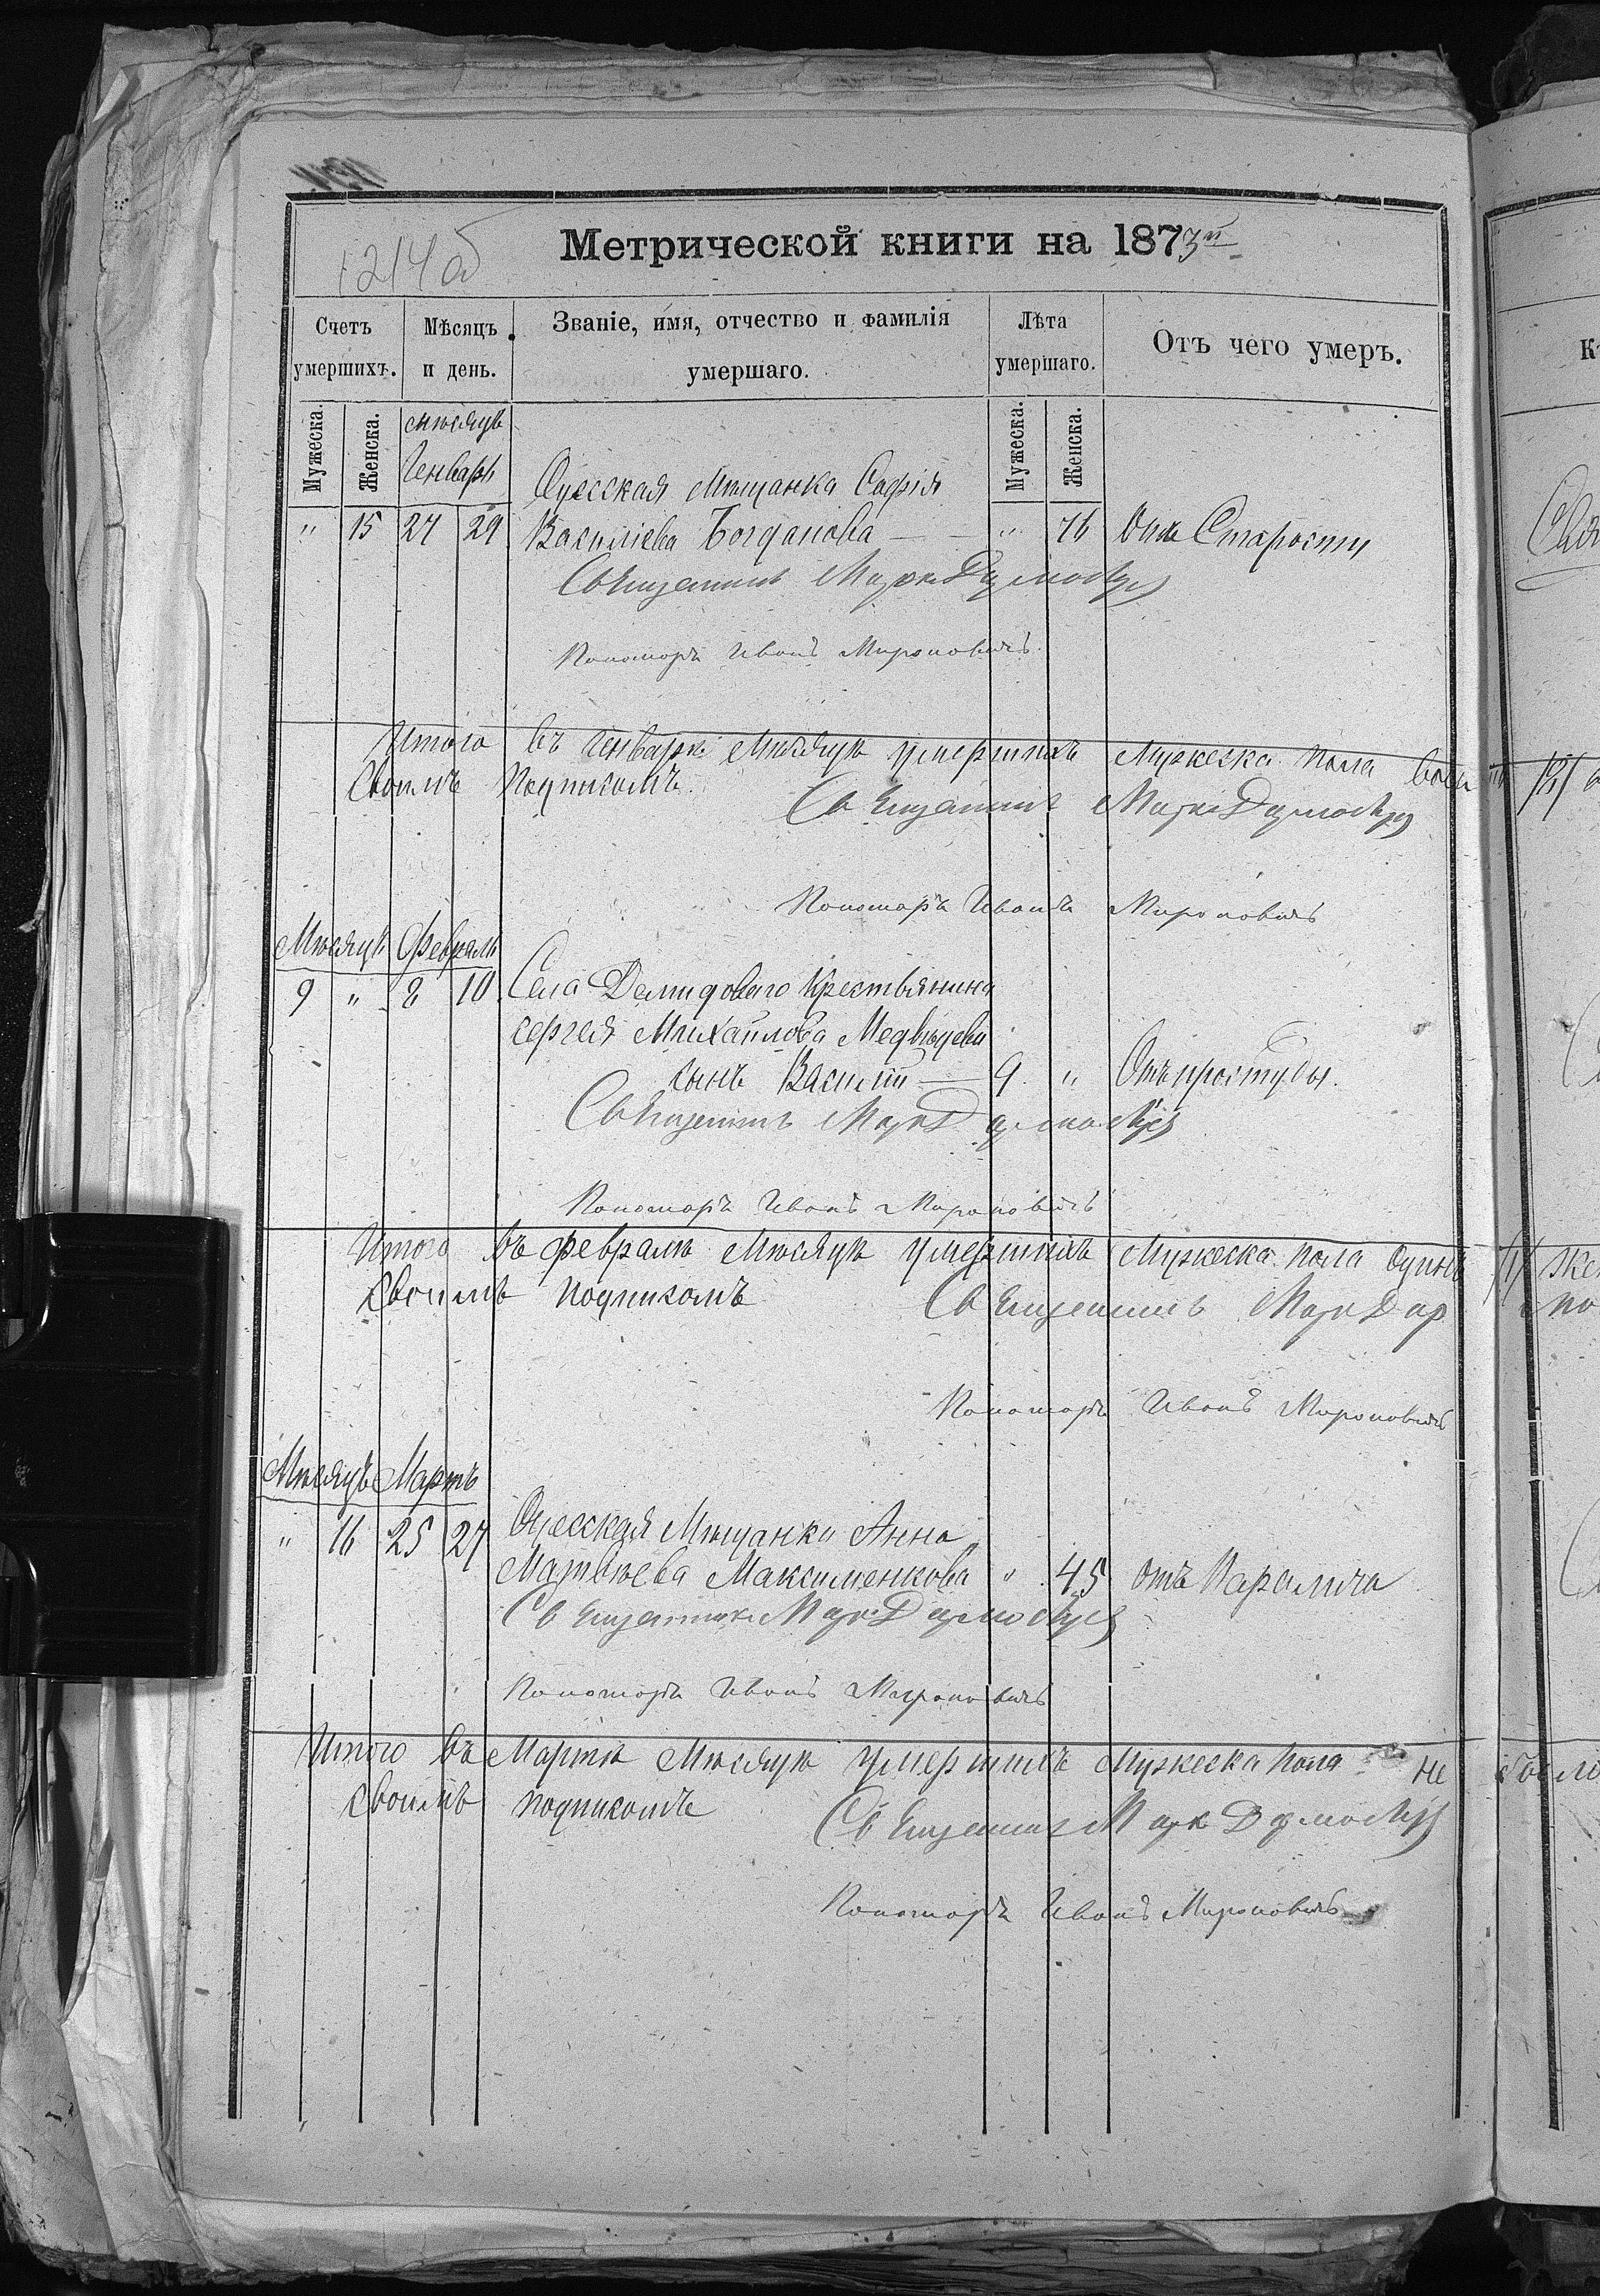 1214 об
Метрической книги на 1873й
Счетъ умершихъ.
Мѣсяцъ и день.
Званіе, имя, отчество и фамилія умершаго.
Лѣта умершаго.
Отъ чего умеръ.
Мужеска.
Женска.
Мужеска.
Женска.
мѣсяцъ
Генварь
Одесская Мѣщанка Софія
" 15 27 29 Василіева Богданова — — " 76 Отъ Старости
Священникъ Маркъ
Пономарь Иванъ Мироновичъ
Итого въ Генварѣ Мѣсяцѣ умершихъ Мужеска пола восемь /8/
Своимъ подписомъ. Священникъ Маркъ
Пономарь Иванъ Мироновичъ
Мѣсяцъ Февраль
9 " 8 10 Села Демидоваго Крестьянина
Сергея Михайлова Медвѣдева
сынъ Василій — 9 " Отъ простуды.
Священникъ Маркъ
Пономарь Иванъ Мироновичъ
Итого въ Февралѣ Мѣсяцѣ умершихъ Мужеска пола одинъ /1/ же
Своимъ подписомъ Священникъ Маркъ
Пономарь Иванъ Мироновичъ
Мѣсяцъ Мартъ
" 16 25 27 Одесская Мѣщанка Анна
Матвѣева Максименкова " 45 отъ Паралича
Священникъ Маркъ
Пономарь Иванъ Мироновичъ
Итого въ Мартѣ Мѣсяцѣ умершихъ Мужеска пола не было
Своимъ подписомъ Священникъ Маркъ
Пономарь Иванъ Мироновичъ